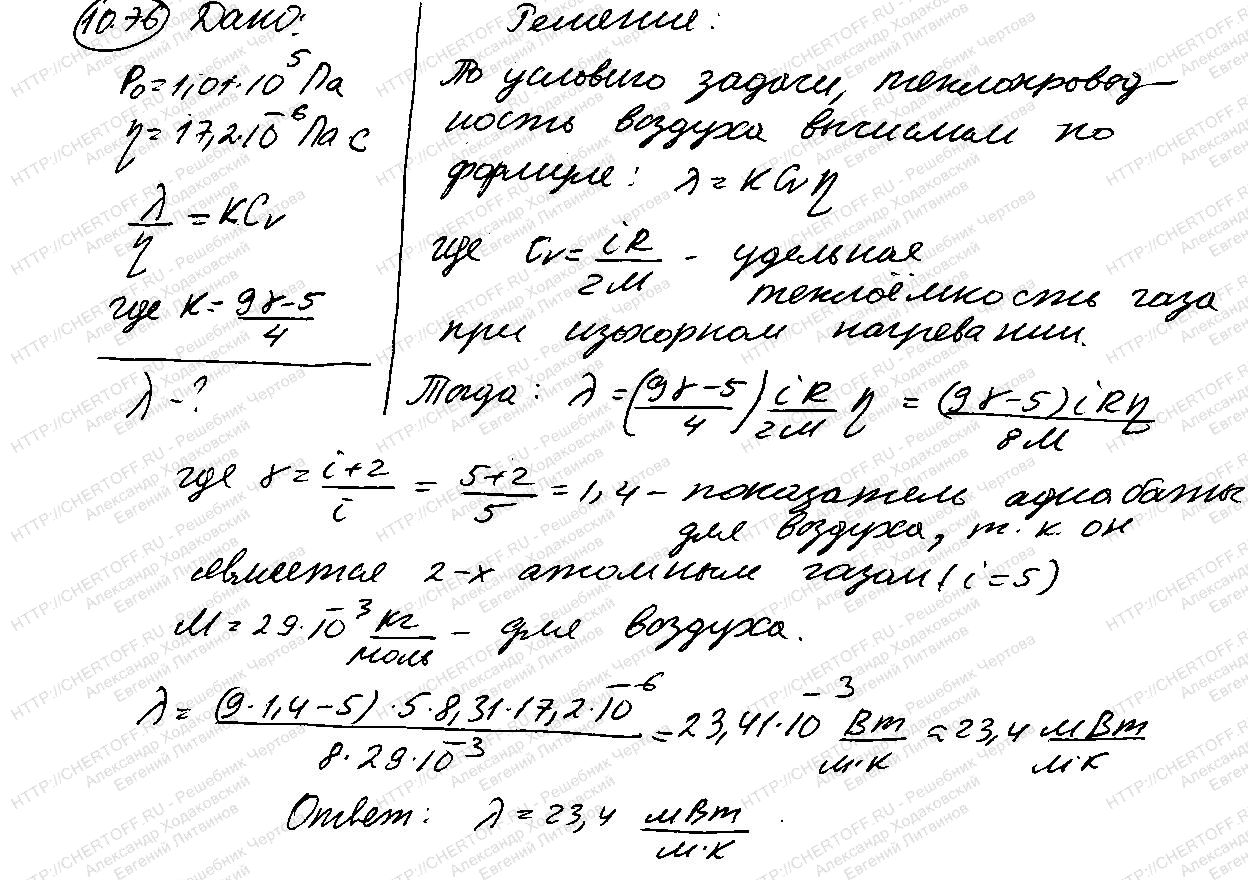 10.76 Дано:
P₀=1,01·10⁵ Па
η=17,2·10⁻⁶ Па с
λ/η = KCv
где K = (9γ-5)/4
λ - ?
Решение:
По условию задачи, теплопровод-
ность воздуха вычислим по
формуле: λ = KCvη
где Cv = iR/2M - удельная
теплоёмкость газа
при изохорном нагревании.
Тогда: λ = ((9γ-5)/4) iR/2M η = (9γ-5)iRη/8M
где γ = (i+2)/i = (5+2)/5 = 1,4 - показатель адиабаты
для воздуха, т.к. он
является 2-х атомным газом (i=5)
M = 29·10⁻³ кг/моль - для воздуха.
λ = (9·1,4-5)·5·8,31·17,2·10⁻⁶/8·29·10⁻³ = 23,41·10⁻³ Вт/м·К ≈ 23,4 мВт/м·К
Ответ: λ = 23,4 мВт/м·К.
HTTP://CHERTOFF.RU - Решебник Чертова
Александр Ходаковский
Евгений Литвинов